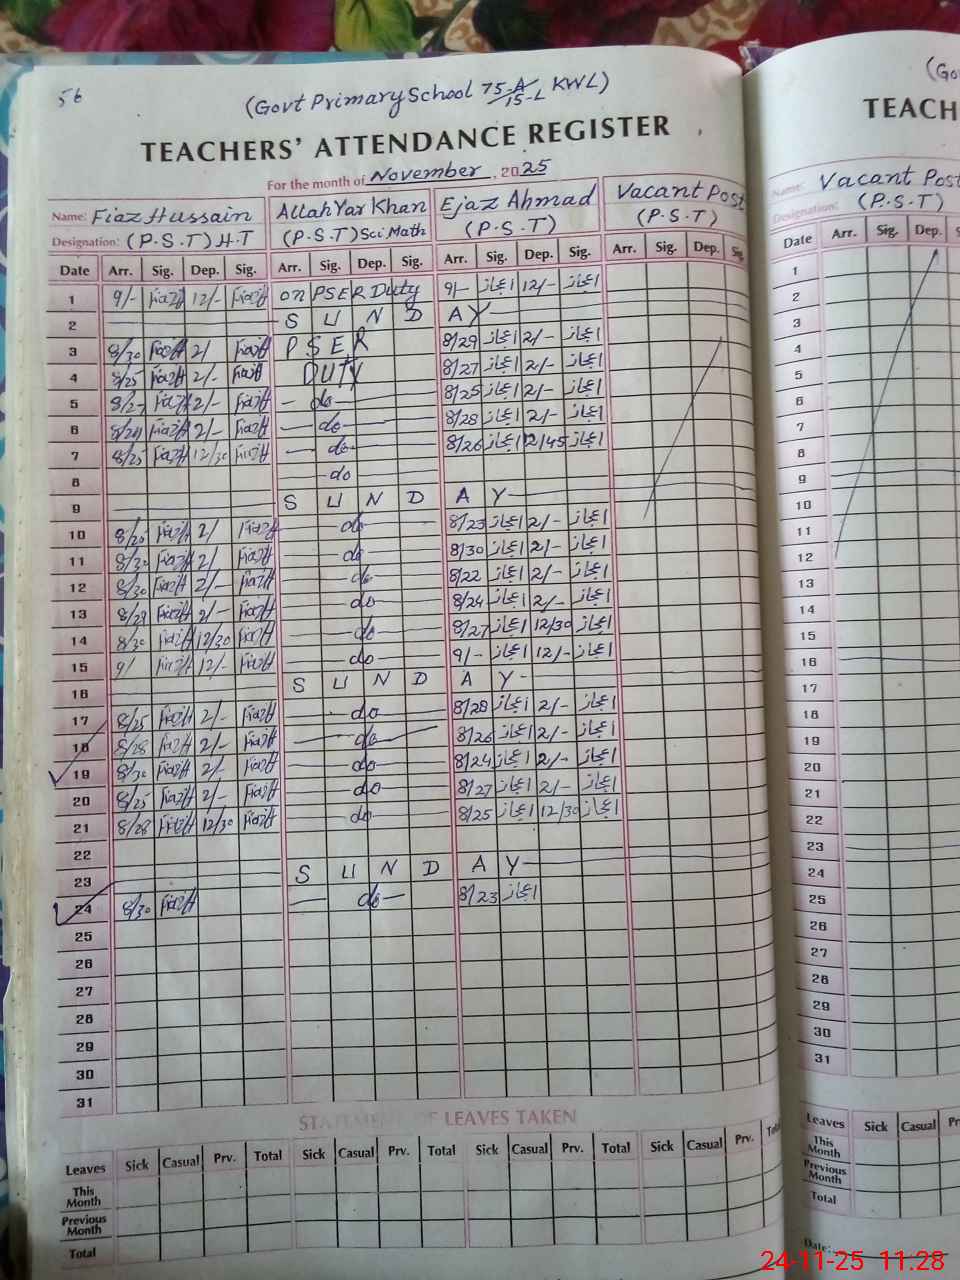 56
(Govt Primary School 75-A/15-L KWL)
TEACHERS' ATTENDANCE REGISTER
For the month of November, 2025
Name: Fiaz Hussain Allah Yar Khan Ejaz Ahmad Vacant Post
Designation: (P.S.T) H.T (P.S.T) Sci Math (P.S.T) (P.S.T)
Date Arr. Sig. Dep. Sig. Arr. Sig. Dep. Sig. Arr. Sig. Dep. Sig. Arr. Sig. Dep. Sig.
1 9/- Fiaz H 12/- Fiaz H on PSER Duty 9/- اعجاز 12/- اعجاز
2 S U N D A Y
3 8/30 Fiaz H 2/ Fiaz H PSER 8/29 اعجاز 2/- اعجاز
4 8/25 Fiaz H 2/- Fiaz H DUTY 8/27 اعجاز 2/- اعجاز
5 8/27 Fiaz H 2/- Fiaz H do 8/25 اعجاز 2/- اعجاز
6 Fiaz H 2/- Fiaz H do 8/28 اعجاز 2/- اعجاز
7 8/25 Fiaz H 12/30 Fiaz H do 8/26 اعجاز 12/45 اعجاز
8 do
9 S U N D A Y
10 8/20 Fiaz H 2/ Fiaz H do 8/23 اعجاز 2/- اعجاز
11 8/30 Fiaz H 2/ Fiaz H do 8/30 اعجاز 2/- اعجاز
12 8/30 Fiaz H 2/- Fiaz H do 8/22 اعجاز 2/- اعجاز
13 8/29 Fiaz H 2/- Fiaz H do 8/24 اعجاز 2/- اعجاز
14 8/30 Fiaz H 12/30 Fiaz H do 8/27 اعجاز 12/30 اعجاز
15 9/ Fiaz H 12/- Fiaz H do 9/- اعجاز 12/- اعجاز
16 S U N D A Y
17 8/25 Fiaz H 2/- Fiaz H do 8/28 اعجاز 2/- اعجاز
18 8/28 Fiaz H 2/- Fiaz H do 8/26 اعجاز 2/- اعجاز
19 8/30 Fiaz H 2/- Fiaz H do 8/24 اعجاز 2/- اعجاز
20 8/25 Fiaz H 2/- Fiaz H do 8/27 اعجاز 2/- اعجاز
21 8/28 Fiaz H 12/30 Fiaz H do 8/25 اعجاز 12/30 اعجاز
22
23 S U N D A Y
24 8/30 Fiaz H do 8/23 اعجاز
25
26
27
28
29
30
31
STATEMENT OF LEAVES TAKEN
Leaves Sick Casual Prv. Total Sick Casual Prv. Total Sick Casual Prv. Total Sick Casual Prv.
This Month
Previous Month
Total
(Go
TEACH
Name: Vacant Post
Designation: (P.S.T)
Date Arr. Sig. Dep. S
1
2
3
4
5
6
7
8
9
10
11
12
13
14
15
16
17
18
19
20
21
22
23
24
25
26
27
28
29
30
31
Leaves Sick Casual Pr
This Month
Previous Month
Total
Date:
24-11-25 11.28